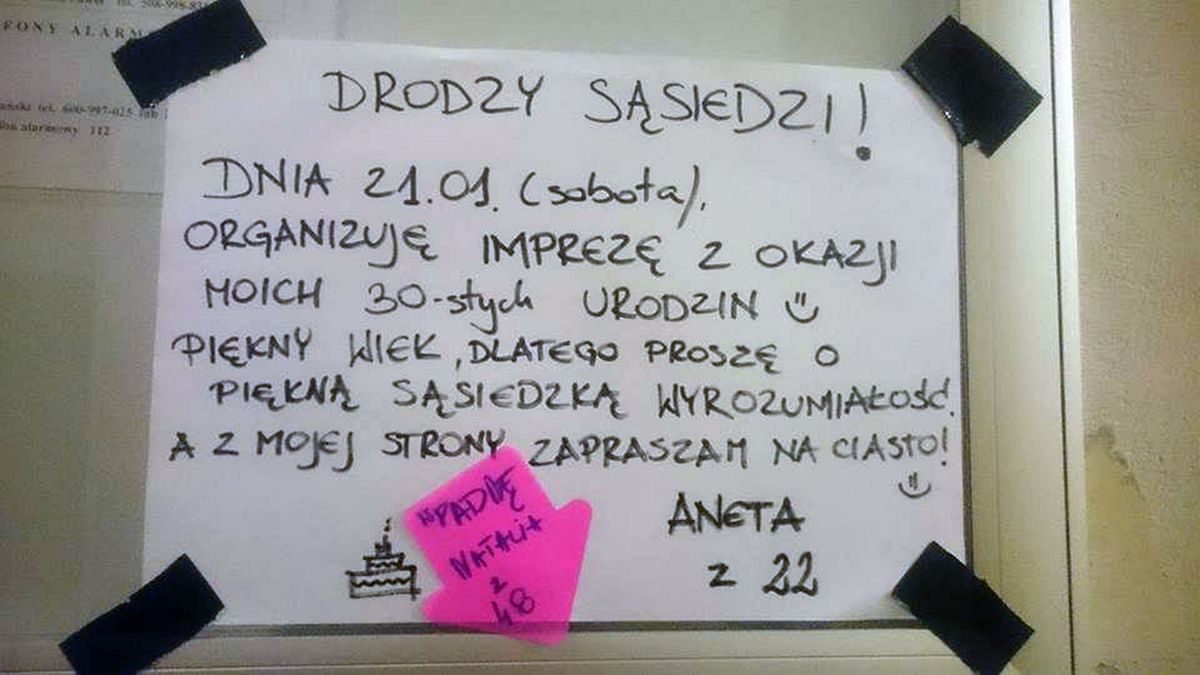 FONY ALARM
tel. 600-997-025 lub
alarmowy 112
DRODZY SĄSIEDZI!
DNIA 21.01. (sobota),
ORGANIZUJĘ IMPREZĘ Z OKAZJI
MOICH 30-stych URODZIN
PIĘKNY WIEK, DLATEGO PROSZĘ O
PIĘKNĄ SĄSIEDZKĄ WYROZUMIAŁOŚĆ.
A Z MOJEJ STRONY ZAPRASZAM NA CIASTO!
ANETA
z 22
WPADNĘ
NATALIA
z
48